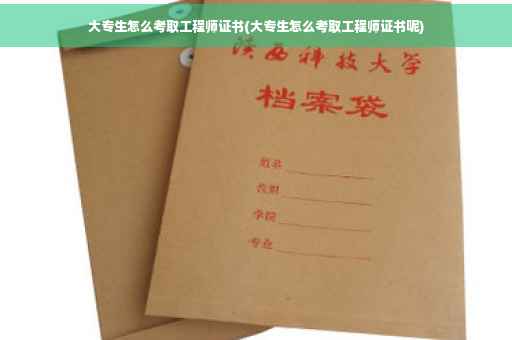 大专生怎么考取工程师证书(大专生怎么考取工程师证书呢)
陕西科技大学
档案袋
姓名
学院
专业